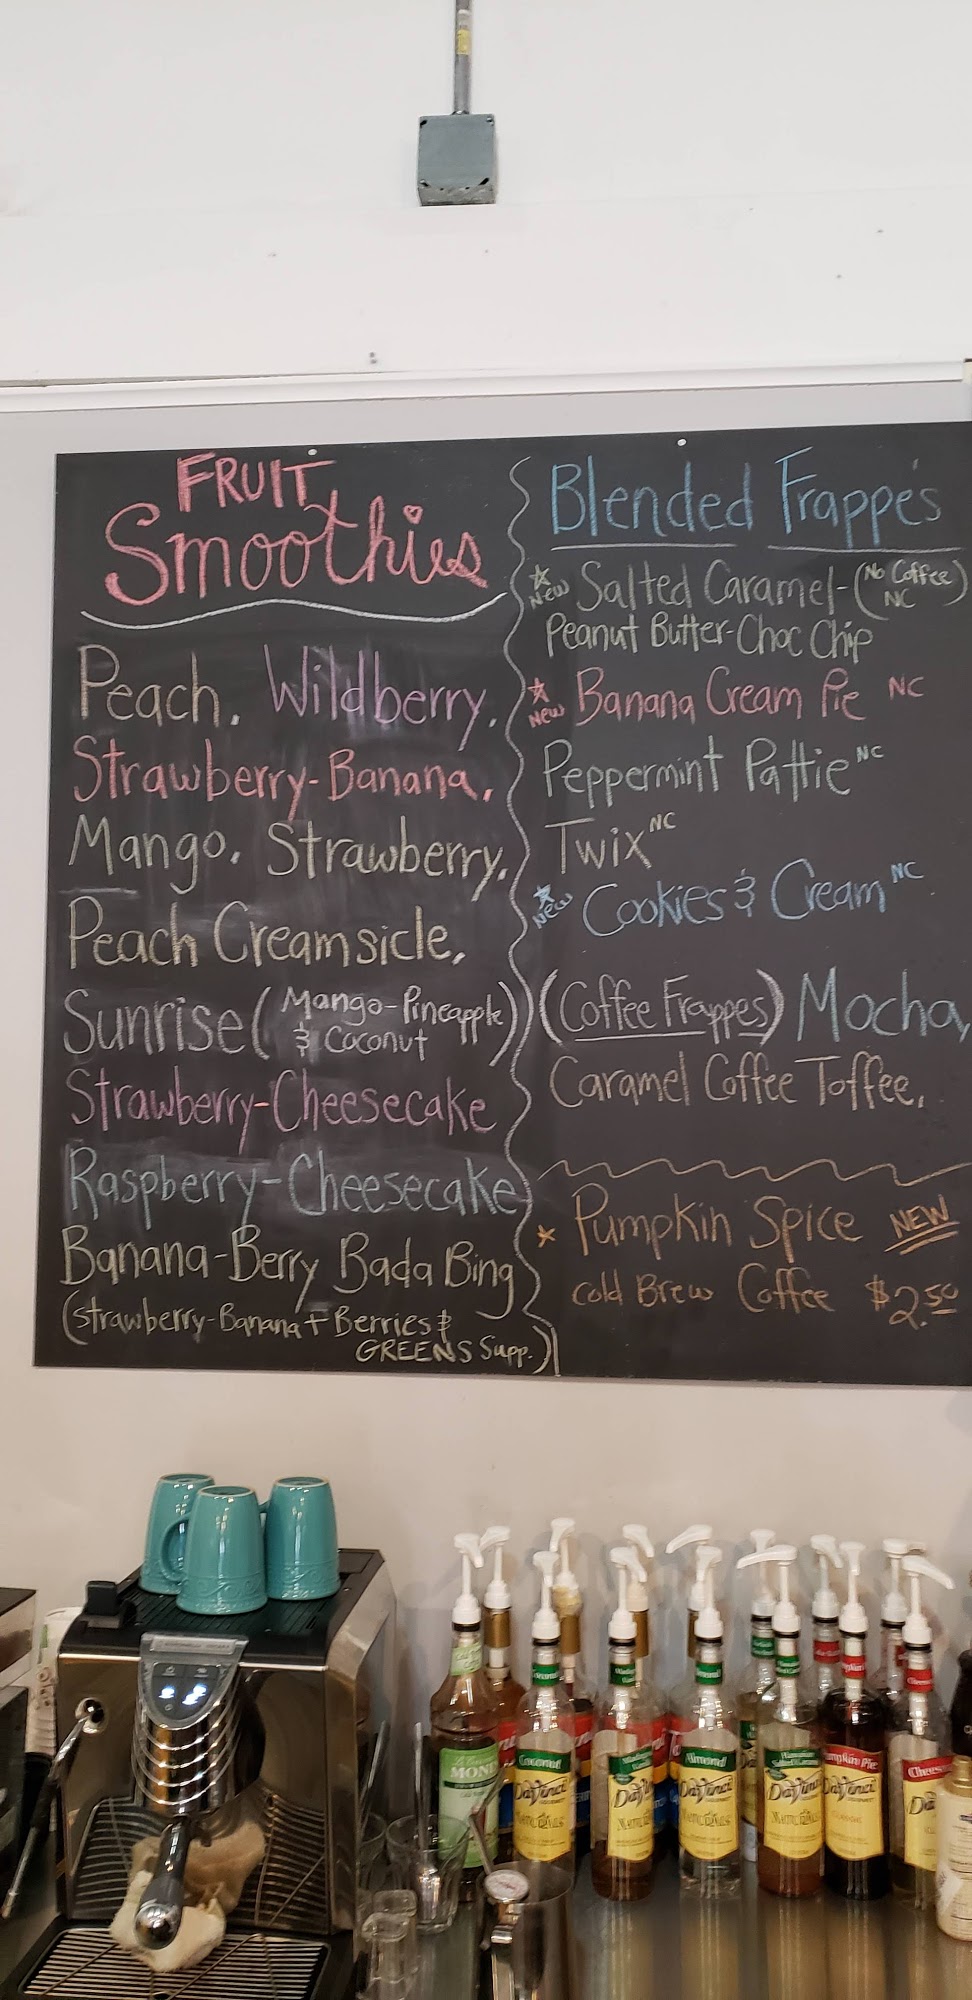 FRUIT
Smoothies
Peach. Wildberry.
Strawberry-Banana.
Mango. Strawberry.
Peach Creamsicle.
Sunrise (Mango-Pineapple
& Coconut)
Strawberry-Cheesecake
Raspberry-Cheesecake
Banana-Berry Bada Bing
(strawberry-Banana + Berries &
GREENS Supp.)
Blended Frappe's
New Salted Caramel-(No Coffee)
NC
Peanut Butter-Choc Chip
New Banana Cream Pie NC
Peppermint Pattie NC
Twix NC
New Cookies & Cream NC
(Coffee Frappes) Mocha,
Caramel Coffee Toffee.
Pumpkin Spice NEW
Cold Brew Coffee $2.50
MONIN
Coconut
DaVinci
GOURMET
NATURALS
DaVinci
NATURALS
Almond
DaVinci
NATURALS
Hawaiian
Salted Caramel
DaVinci
NATURALS
Pumpkin Pie
DaVinci
Chees
Da